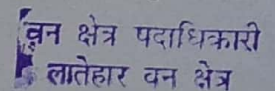 वन क्षेत्र पदाधिकारी
लातेहार वन क्षेत्र